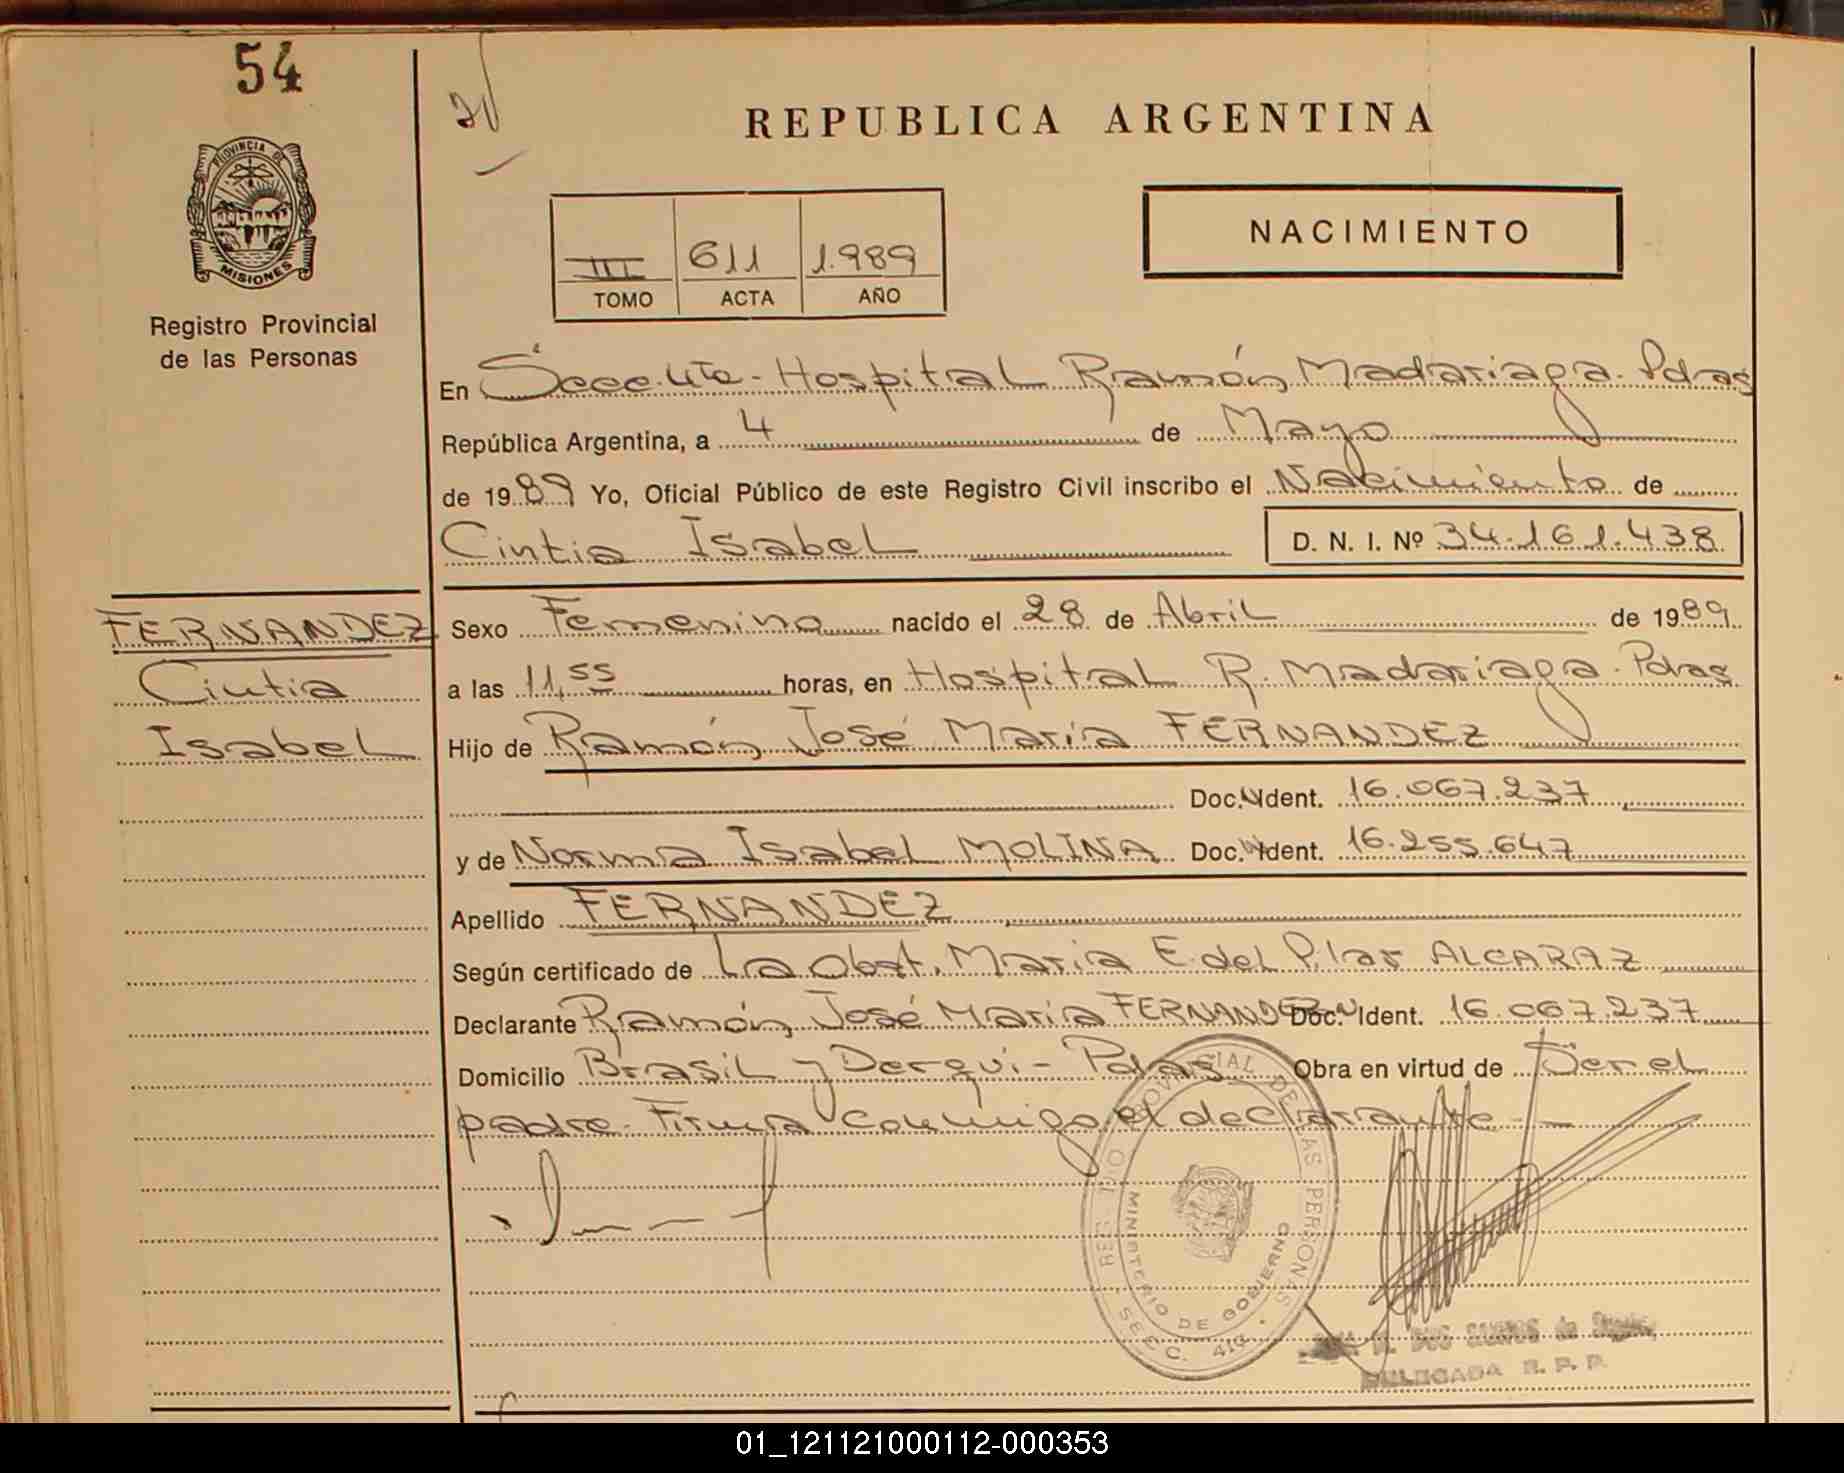 54
PROVINCIA DE
MISIONES
Registro Provincial
de las Personas
FERNANDEZ
Cintia
Isabel
REPUBLICA ARGENTINA
NACIMIENTO
III 611 1.989
TOMO ACTA AÑO
En Secc. 4ta - Hospital Ramón Madariaga. Pdas
República Argentina, a 4 de Mayo
de 1989 Yo, Oficial Público de este Registro Civil inscribo el Nacimiento de
Cintia Isabel D. N. I. Nº 34.161.438
Sexo Femenino nacido el 28 de Abril de 1989
a las 11,55 horas, en Hospital R. Madariaga. Pdas
Hijo de Ramón José María FERNANDEZ
Doc. Ident. 16.067.237
y de Norma Isabel MOLINA Doc. Ident. 16.255.647
Apellido FERNANDEZ
Según certificado de La Obst. María E. del Pilar ALCARAZ
Declarante Ramón José María FERNANDEZ Doc. Ident. 16.067.237
Domicilio Brasil y Derqui - Pdas Obra en virtud de Ser el
padre. Firma conmigo el declarante -
REGISTRO PROVINCIAL DE LAS PERSONAS
MINISTERIO DE GOBIERNO
SECC. 4ta
DOS SANTOS de
DELEGADA R. P. P.
01_121121000112-000353